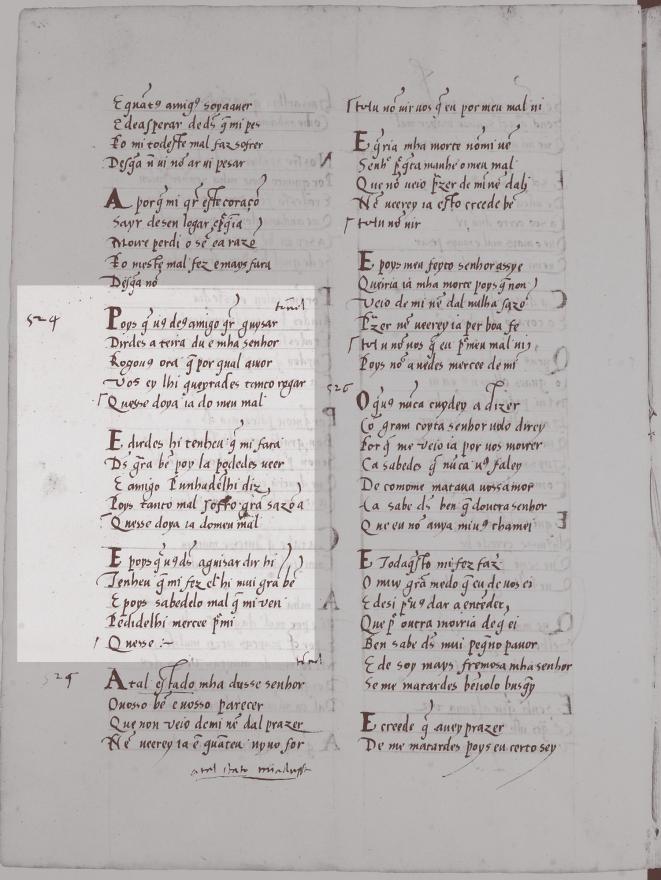 E quāt9 amig9 soya auer
E deasperar de ds̄ q̄ mi pes
Ko mi todeste mal faz sofrer
Desq̄a nō ui nō ar ui pesar
A porq̄ mi q̄r este coraçō
Sayr desen logar, e p̄q̄ia
Moire perdi o sē ea razō
Ko meste mal fez e mays fara
Desq̄a nō
524
tornel
Pois q̄ u9 de9 amigo q̄r guysar
Dirdes a terra du e mha senhor
Rogou9 ora q̄ por qual amor
Vos ey lhi queyrades tanto rogar
Quesse doya ia do meu mal
E dirdes hi tenheu q̄ mi fara
Ds̄ grā bē poy la podedes ueer
E amigo Punhadelhi diz
Poys tanto mal soffro grā sazō a
Quesse doya ia domeu mal
E poys q̄ u9 ds̄ aguisar dir hi
Tenheu q̄ mi fez el hi mui grā bē
E poys sabedelo mal q̄ mi ven
Pedidelhi mercee p̄ mi
Quesse :~
525
tornel
Atal estado mha dusse senhor
Ouosso bē e uosso parecer
Que non veio demi nē dal prazer
Nē veerey ia ē quāteu uyuo for
atal stato miadusse
tolu nō uir uos q̄ eu por meu mal ui
E q̄ria mha morte nō mi uē
Senhor p̄q̄ ca manhe o meu mal
Que nō veio p̄zer de mi nē dal
Nē veerey ia esto creede bē
tolu nō uir
E poys meu feyto senhor assy e
Queiria iā mha morte poys q̄ non
Veio de mi nē dal nulha sazō
P̄zer nē veerey ia per boa fe
tolu nō uos q̄ eu p̄ meu mal ui
Poys nō auedes mercee de mi
526
O q̄ u9 nūca cuydey a dizer
Cō gram coyta senhor uolo direy
Por q̄ me veio ia por uos morrer
Ca sabedes q̄ nūca u9 faley
De comome mataua uossamor
Ca sabe ds̄ ben q̄ doutra senhor
Que eu nō auya miu9 chamei
E Todaq̄sto mi fez faz
O muy grā medo q̄ eu de uos ei
E desi p̄ u9 dar a entēder
Que p̄ outra moiria de q̄ ei
Ben sabe ds̄ mui peq̄no pauor
E de soy mays fremosa mha senhor
Se me matardes bē uolo busq̄y
E creede q̄ auey prazer
De me matardes poys eu certo sey